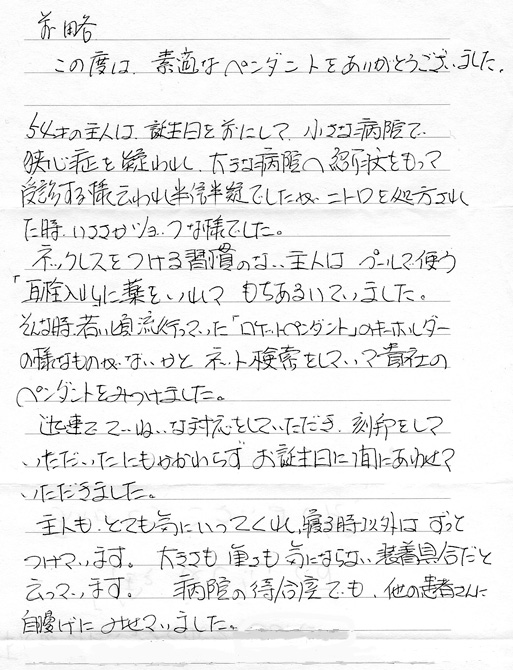 前略
この度は、素適なペンダントをありがとうございました。
54才の主人は、誕生日を前にして、小さな病院で
狭心症を疑われ、大きな病院へ紹介状をもって
受診する様云われ半信半疑でしたが、ニトロを処方され
た時、いささかショックな様でした。
ネックレスをつける習慣のない主人は プールで使う
「耳栓入れ」に薬をいれて もちあるいていました。
そんな時、若い頃流行っていた「ロケットペンダント」のキーホルダー
の様なものがないかと ネット検索をしていて貴社の
ペンダントをみつけました。
迅速でていねいな対応をしていただき、刻印をして
いただいたにもかかわらず お誕生日に間にあわせて
いただきました。
主人も、とても気にいってくれ、寝る時以外は ずっと
つけています。 大きさも重さも気にならない装着具合だと
云っています。 病院の待合室でも、他の患者さんに
自慢げに みせていました。